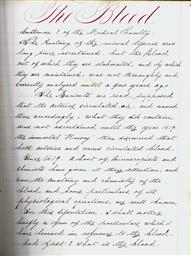 The Blood
Gentlemen of the Medical Faculty
The Anatomy of the animal before was
long since, ascertained. But the blood,
out of which they are elaborated, and by which
they are maintained, was not thoroughly and
correctly analysed until a few years ago.
The Ancients we read, supposed
that the arteries circulated air, and named
them accordingly. What they did contain,
was not ascertained until the year 1619
the immortal Harvey then discovered that
both arteries and veins circulated blood.
Since 1619, a host of
chemists have given it their attention, and
now the anatomy and chemistry of the
blood, and some particulars of its
physiological operations are well known.
In this dissertation, I shall notice
briefly a few of the particulars which I
have learned in reference to the blood.
And first: what is the blood.